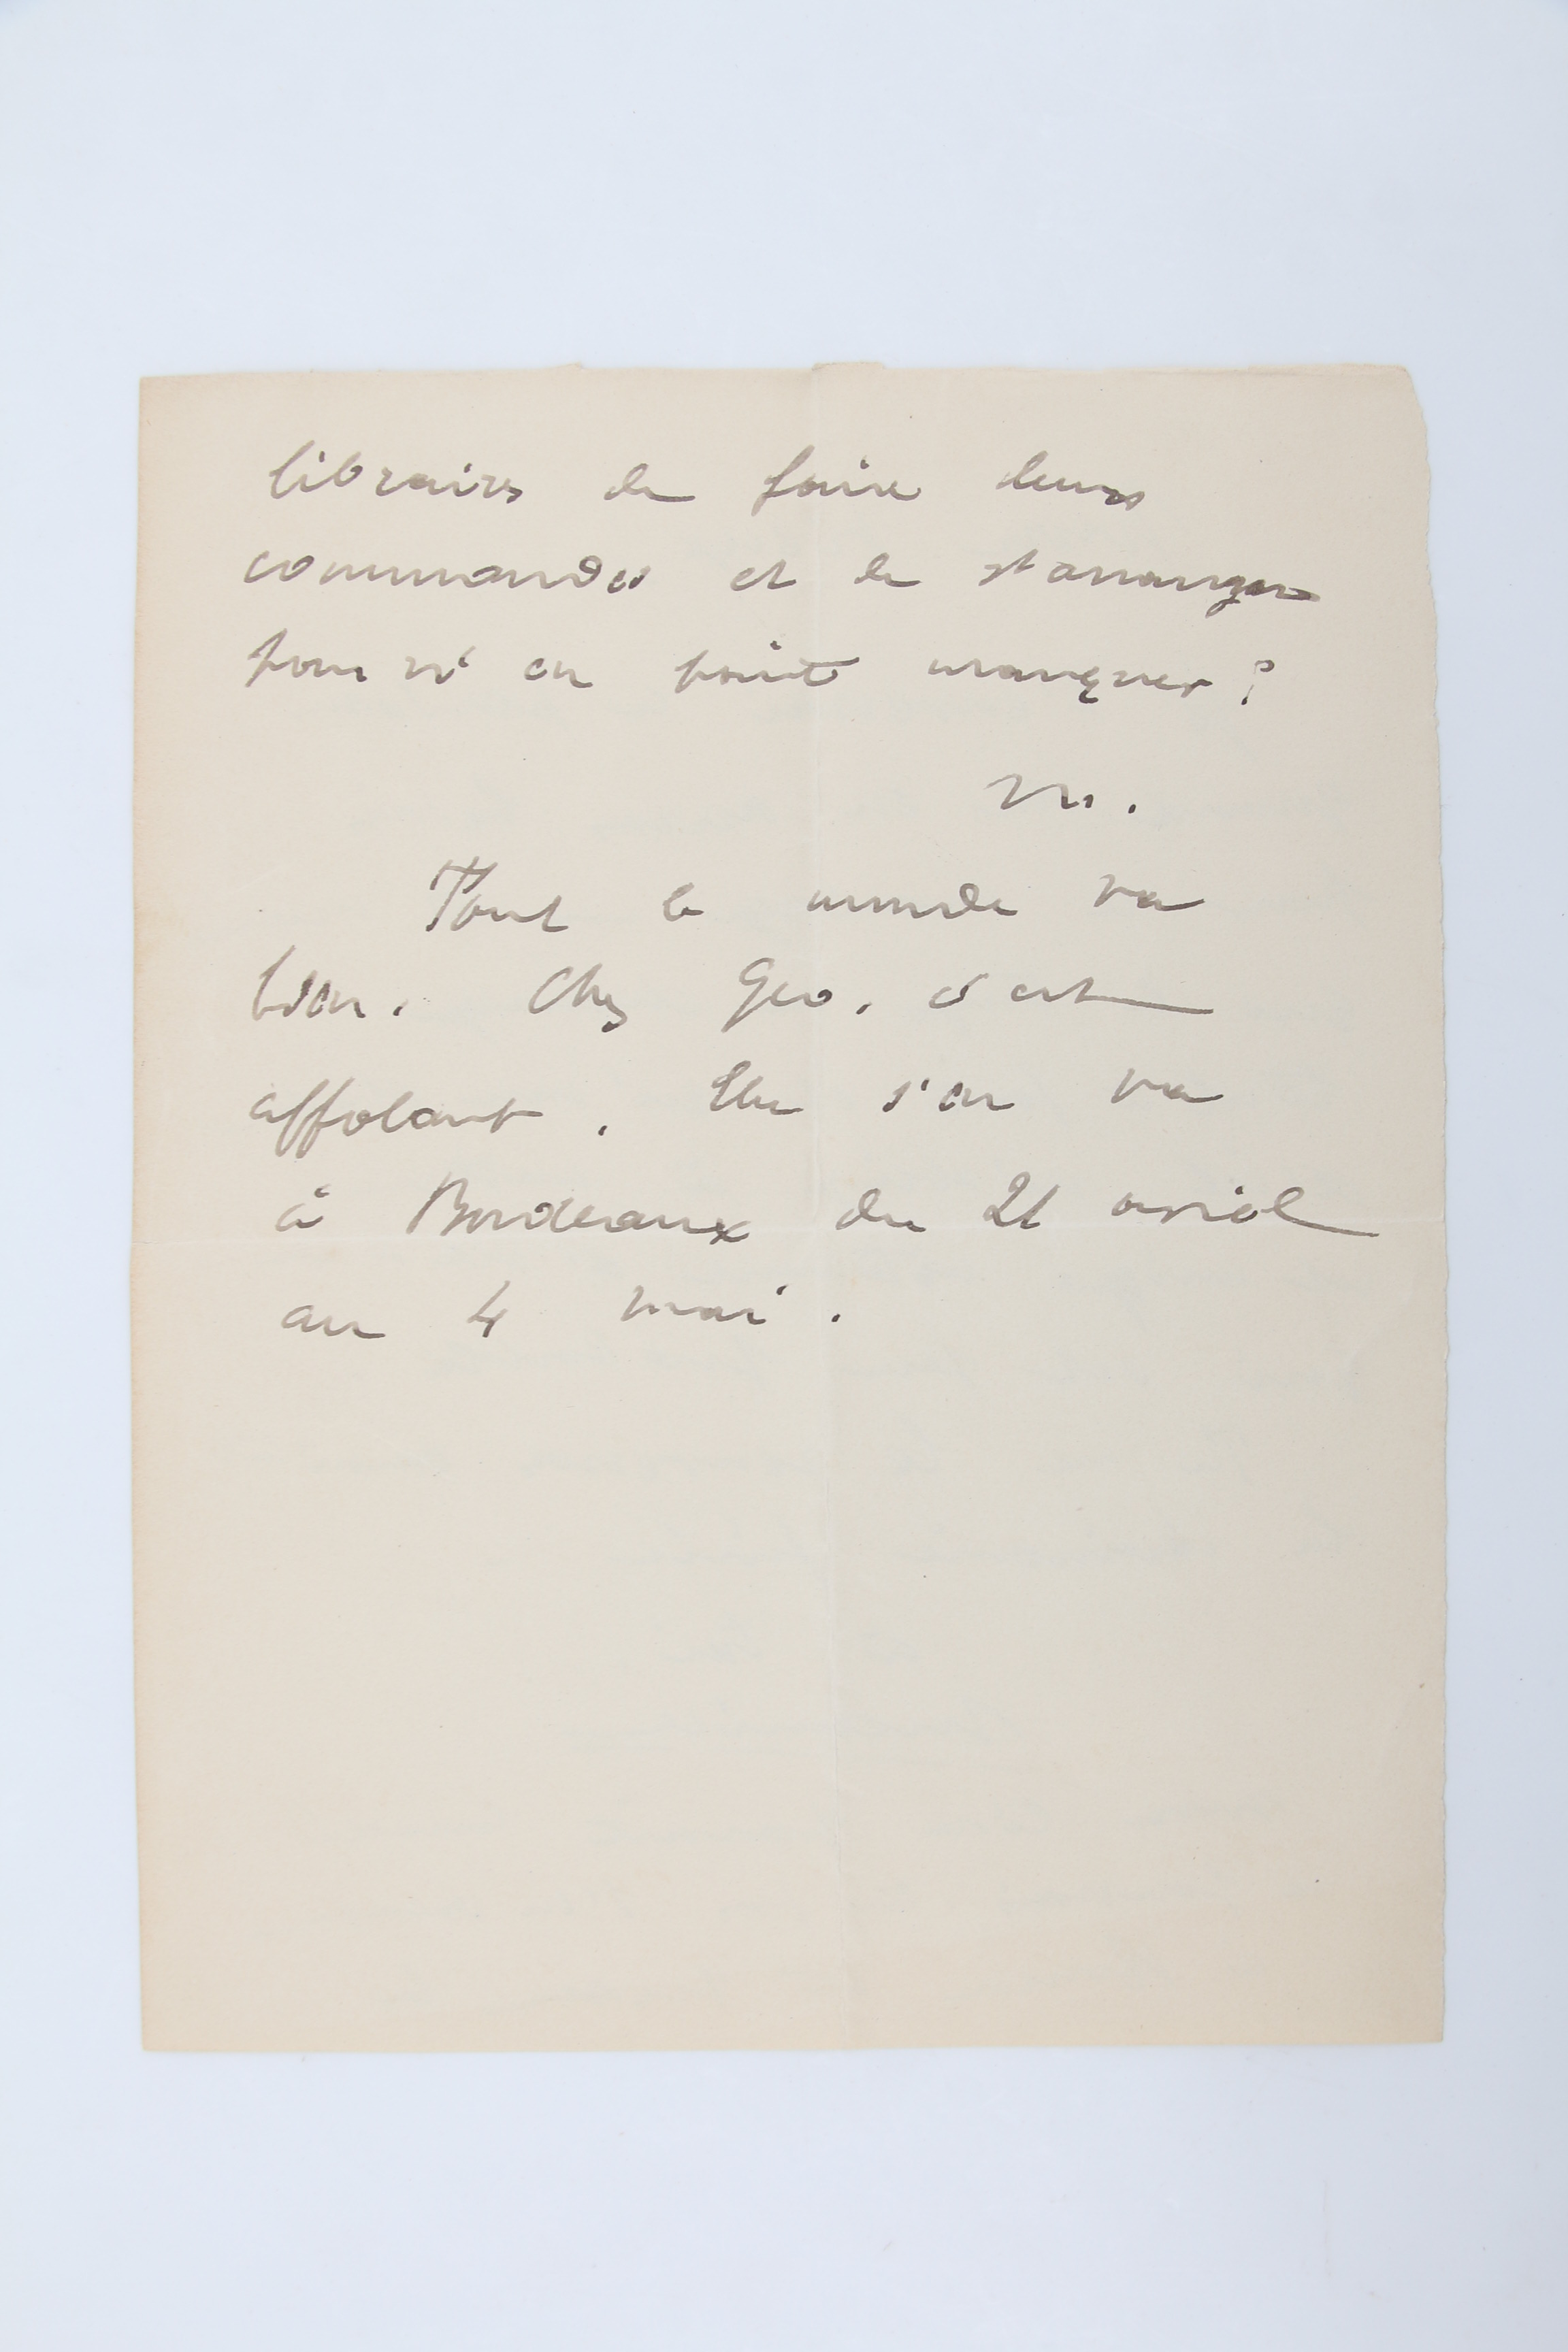 libraires de faire leurs
commandes et de s'arranger
pour n'en point manquer ?
M.
Tout le monde va
bien. Chez Geo, c'est
affolant. Elle s'en va
à Bordeaux du 21 avril
au 4 mai.